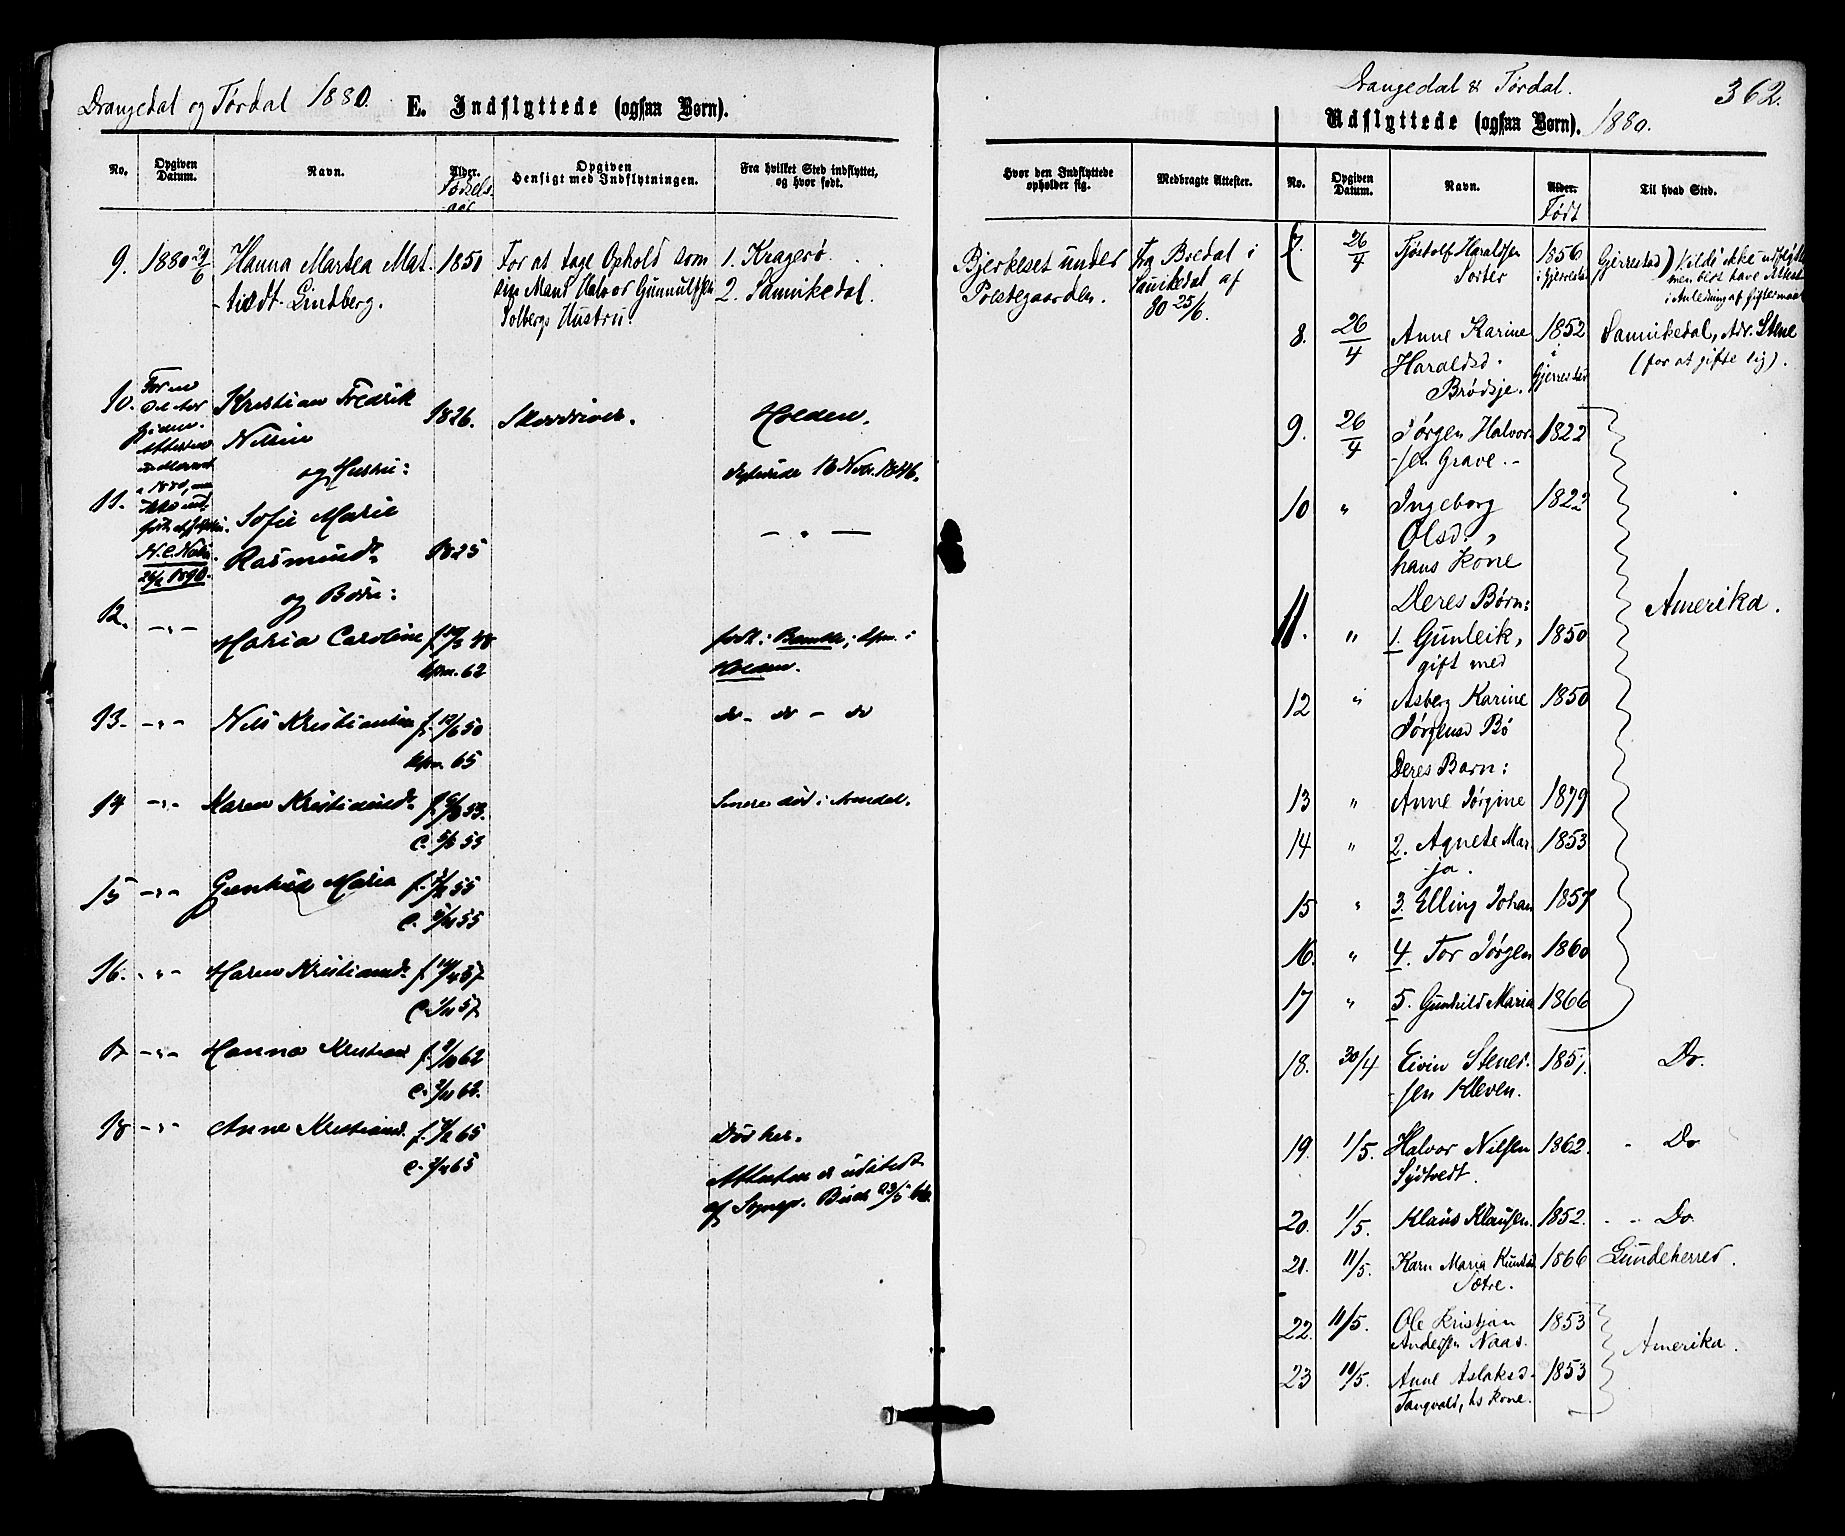 Drangedal og Tørdal 1880.
E. Indflyttede (ogsaa Børn).
No.
Opgiven Datum.
Navn.
Alder.
Fødselsaar
Opgiven Hensigt med Indflytningen.
Fra hvilket Sted indflyttet, og hvor født.
9. 1880 Hanna Martea Mat- 1850 For at tage Ophold som 1. Kragerø.
-tisdt. Lindberg. sin Mand Halvor Gunnulfsen 2. Sannikedal.
Solbergs Hustru.
10. Kristian Fredrik 1826. Skovdriver. Holden.
Nilsen
og Hustru: 18 Nov. 1846.
11. Sofie Marie
Rasmusd. 1825
N. C. Nilsen
1890.
og Børn:
12. -"- Maria Caroline f. 48 født i Bamble, i
62 Holden.
13. -"- Nils Kristiansen f. 50 do - do - do
65
14 -"- Karen Kristiansd. f. 53. Senere død i Arendal.
c. 53
15 -"- Gunhild Maria f. 55
c. 55
16. -"- Maren Kristiansd. f. 57
c. 57
17 -"- Hanna Kristiansd f. 62
c. 62.
18 -"- Anne Kristiansd. f. 65 Død her.
c. 65 Attesten er udstedt
af Sognepr. 66.
Drangedal & Tørdal. 362.
Udflyttede (ogsaa Børn). 1880.
Hvor den Indflyttede opholder sig.
Medbragte Attester.
No.
Opgiven Datum.
Navn.
Alder.
Født
Til hvad Sted.
Bjerkeset under Fra Bredal i
Polstegaarden. Sannikedal af
80 25/6.
7. 26/4 Tjostolf Haraldsen 1856 Gjerrestad) Vilde ikke udflytte
Torter i Gjerrestad men blot have Attest
i Anledning af Giftermaal
8. 26/4 Anne Karine 1852 Sannikedal, Adr. Stene
Haraldsd. i (for at gifte sig).
Brødsje. Gjerrestad
9. 26/4 Jørgen Halvor- 1822
-sen Grave.
10 " Ingeborg 1822
Olsd. "
hans Kone
Deres Børn: Amerika.
11. " 1. Gunleik, 1850
gift med
12 " Asberg Karine 1850
Jørgensd Bø
Deres Barn:
13 " Anne Jørgine 1879
14 " 2. Agnete Mar- 1853
ja.
15 " 3. Elling Johan 1857
16. " 4. Tor Jørgen 1860
17 " 5. Gunhild Maria 1866
18. 30/4 Eivin Stenes- 1851. Do.
-sen Kleven.
19. 1/5. Halvor Nilsen 1862. " Do
Sydtvedt.
20. 1/5. Klaus Klausen. 1852. " " Do
21. 11/5. Karn Maria Knutsd. 1866 Lundeherred.
Sætre.
22. 11/5. Ole Kristjan 1853
Andersen Naas. Amerika.
23 11/5. Anne Aslaksd. 1853
Tangvald, hs Kone.